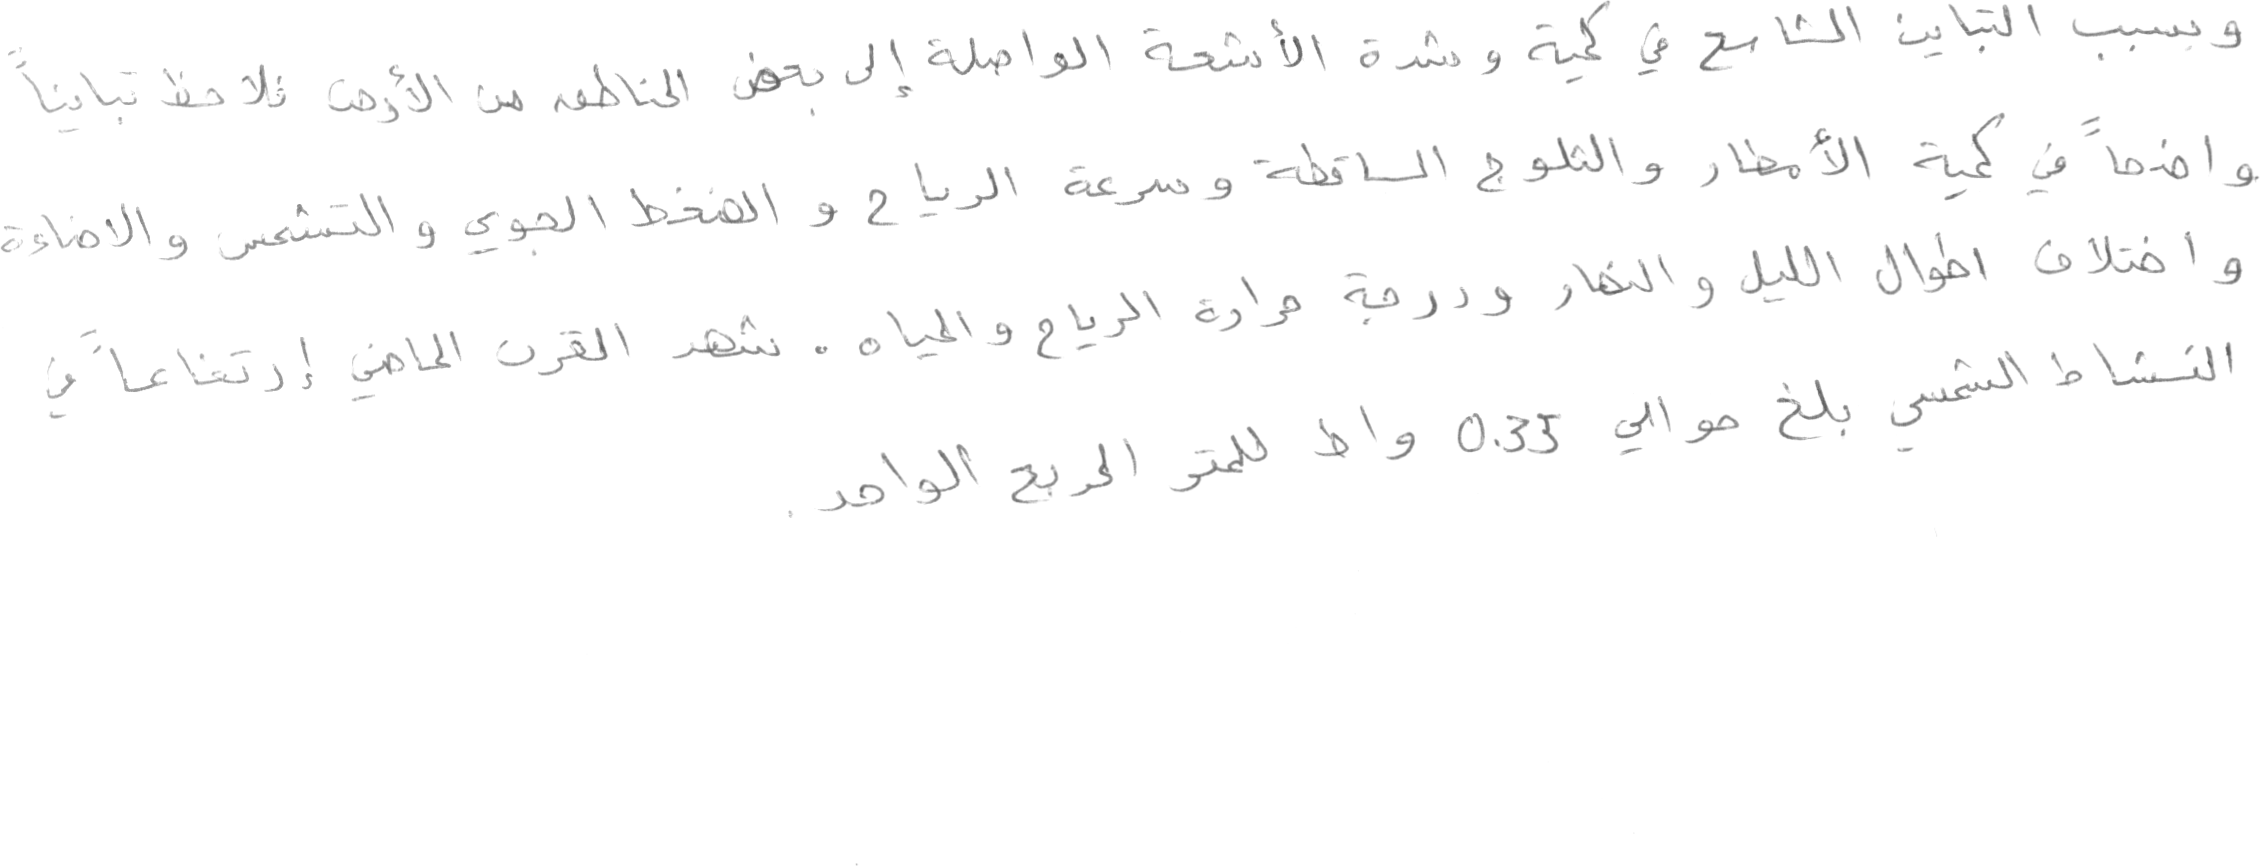 وبسبب التباين الشاسع في كمية وشدة الأشعة الواصلة إلى بعض المناطق من الأرض نلاحظ تبايناً
واضحاً في كمية الأمطار والثلوج الساقطة وسرعة الرياح والضغط الجوي والتشمس والاضاءة
واختلاف اطوال الليل والنهار ودرجة حرارة الرياح والمياه. شهد القرن الماضي إرتفاعاً في
النشاط الشمسي بلغ حوالي 0.35 واط للمتر المربع الواحد.